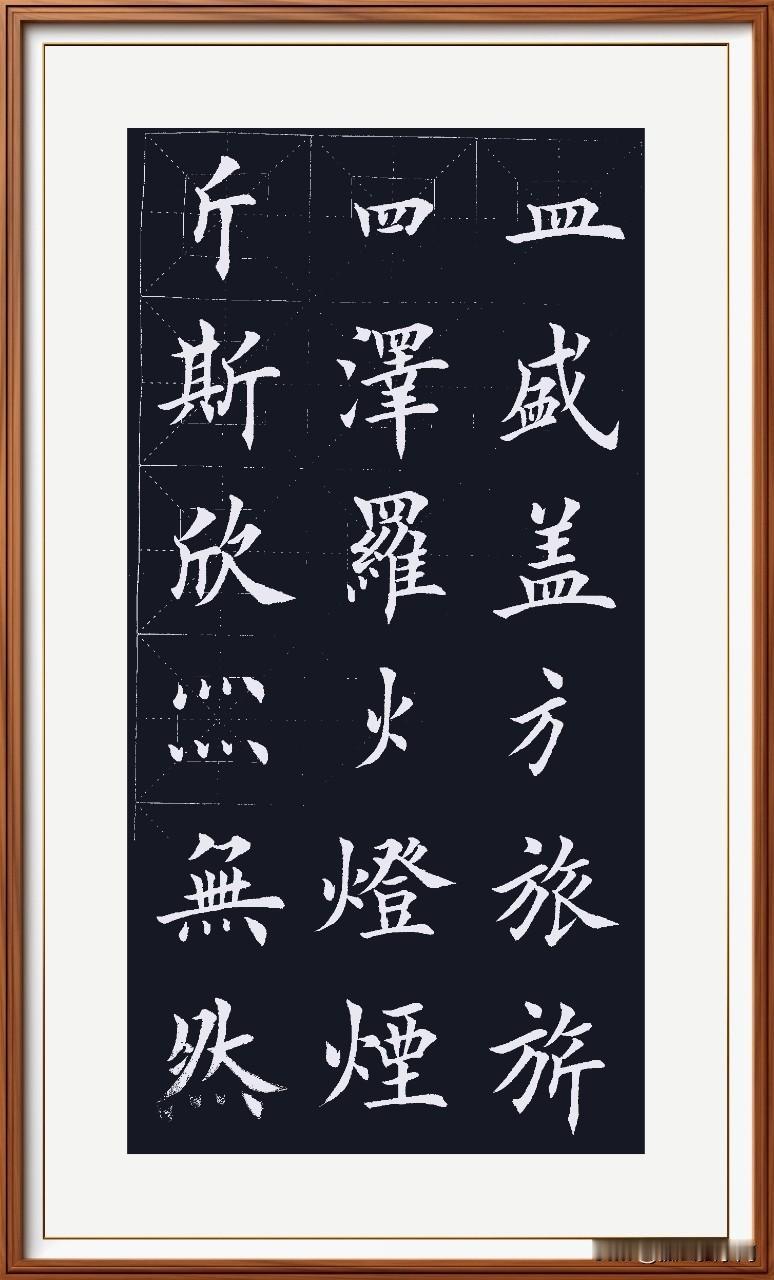 皿盛盖方旅旂
罒澤羅火燈煙
斤斯欣灬灬無然